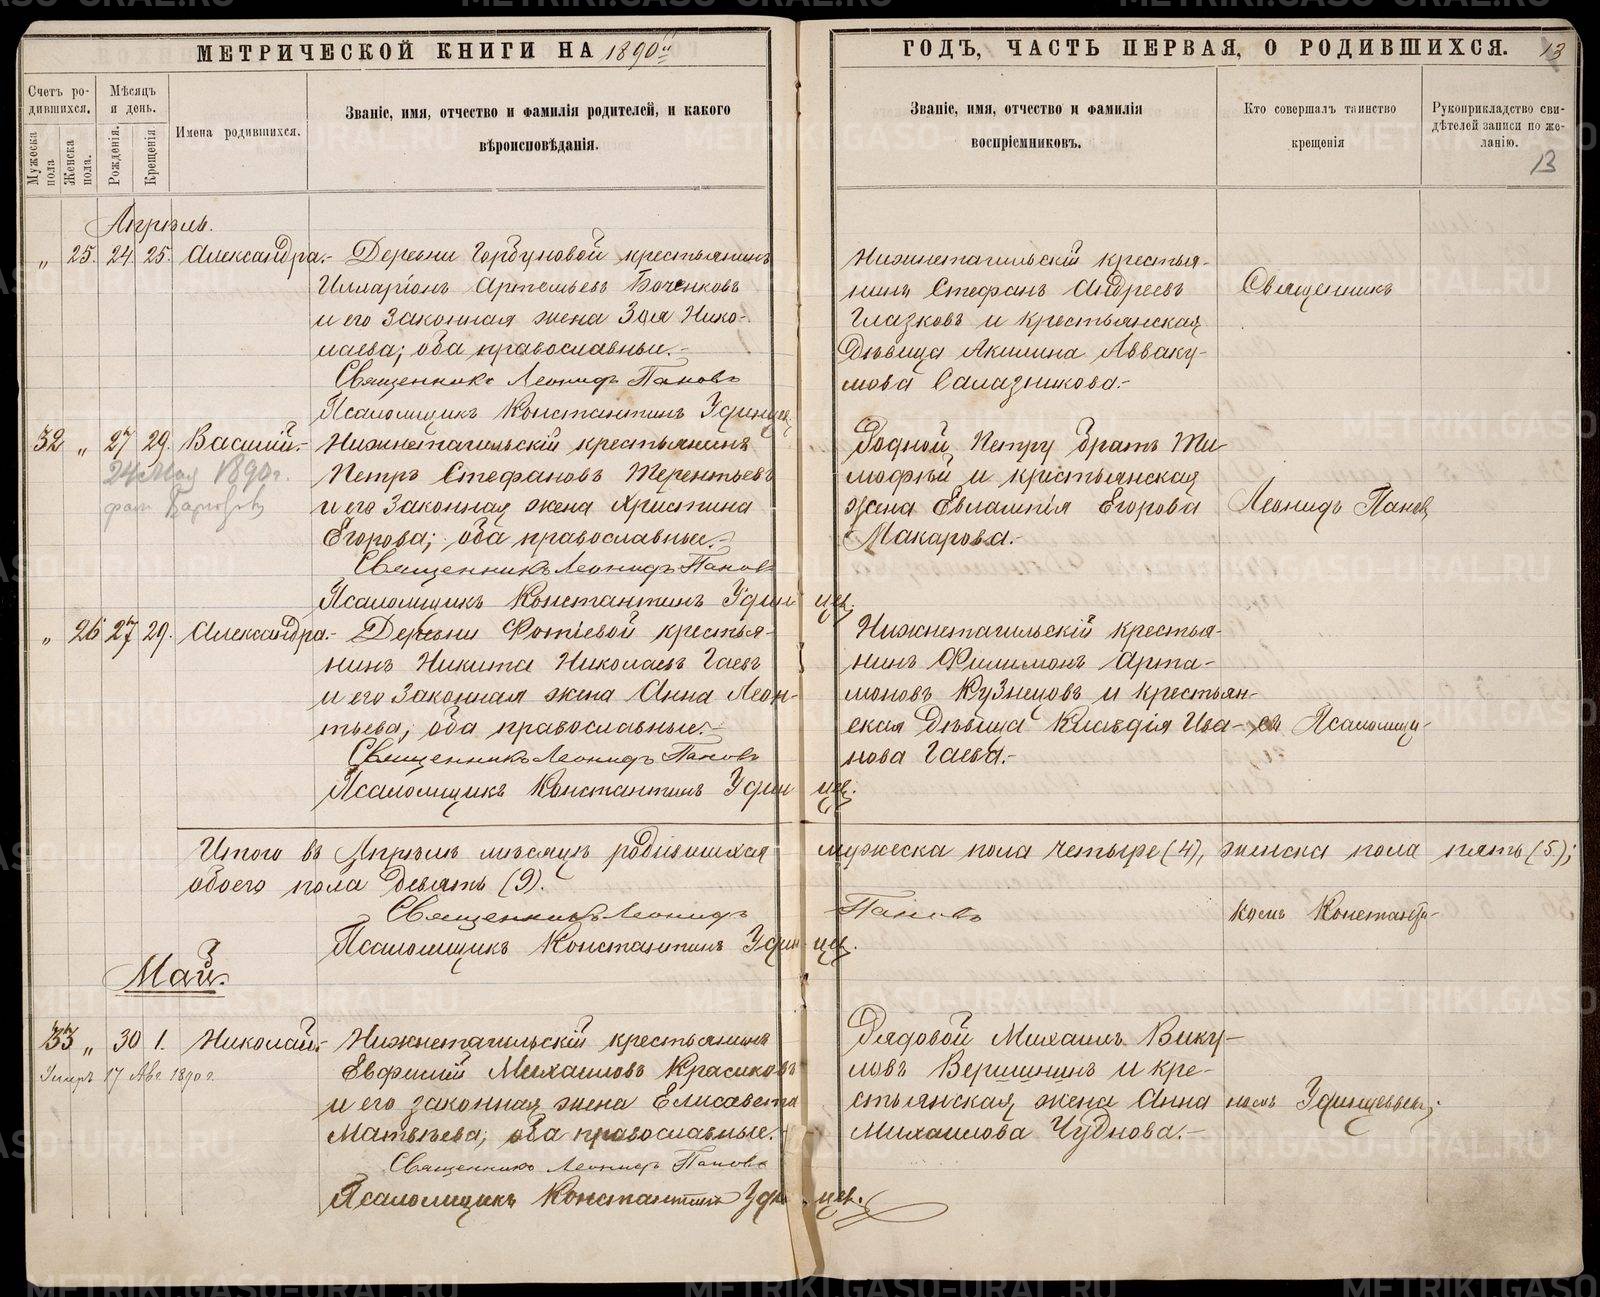 МЕТРИЧЕСКОЙ КНИГИ НА 1890й
ГОДЪ, ЧАСТЬ ПЕРВАЯ, О РОДИВШИХСЯ. 13
Счетъ родившихся.
Мужеска пола
Женска пола.
Мѣсяцъ и день.
Рожденія.
Крещенія
Имена родившихся.
Званіе, имя, отчество и фамилія родителей, и какого
вѣроисповѣданія.
Званіе, имя, отчество и фамилія
воспріемниковъ.
Кто совершалъ таинство
крещенія
Рукоприкладство сви-
дѣтелей записи по же-
ланію.
13
Апрѣль.
" 25. 24. 25. Александра.- Деревни Горбуновой крестьянинъ
Илларіонъ Артемьевъ Боченковъ
и его законная жена Зоя Нико-
лаева; оба православные.-
Священникъ Леонидъ Пановъ
Псаломщикъ Константинъ Удинцев
Нижнетагильскій крестья-
нинъ Стефанъ Андреевъ
Глазковъ и крестьянская
дѣвица Акилина Авваку-
мова Салазникова.-
Священникъ
32 " 27 29. Василій.- Нижнетагильскій крестьянинъ
24 мая 1890 г.
Петръ Стефановъ Терентьевъ
и его законная жена Христина
Егорова; оба православные.-
Священникъ Леонидъ Пановъ
Псаломщикъ Константинъ Удинцев.
Родной Петру братъ Ти-
мофѣй и крестьянская
жена Евлампія Егорова
Макарова.-
Леонидъ Пановъ
" 26 27 29. Александра.- Деревни Фотіевой крестья-
нинъ Никита Николаевъ Гаевъ
и его законная жена Анна Леон-
тьева; оба православные.-
Священникъ Леонидъ Пановъ
Псаломщикъ Константинъ Удинцев.
Нижнетагильскій крестья-
нинъ Филимонъ Арта-
моновъ Кузнецовъ и крестьян-
ская дѣвица Клавдія Ива-
нова Гаева.-
съ Псаломщи-
Итого въ Апрѣлѣ мѣсяцѣ родившихся мужеска пола четыре (4), женска пола пять (5);
обоего пола девять (9).
Священникъ Леонидъ Пановъ
комъ Константи-
Псаломщикъ Константинъ Удинцев.
Май.
33 " 30 1. Николай.- Нижнетагильскій крестьянинъ
Умеръ 17 Авг. 1890 г.
Евфимій Михаиловъ Красиковъ
и его законная жена Елисавета
Матвѣева; оба православные.-
Священникъ Леонидъ Пановъ
Псаломщикъ Константинъ Удинцев.
Рядовой Михаилъ Вику-
ловъ Вершининъ и кре-
стьянская жена Анна
Михаилова Чуднова.-
номъ Удинцевымъ;
METRIKI.GASO-URAL.RU